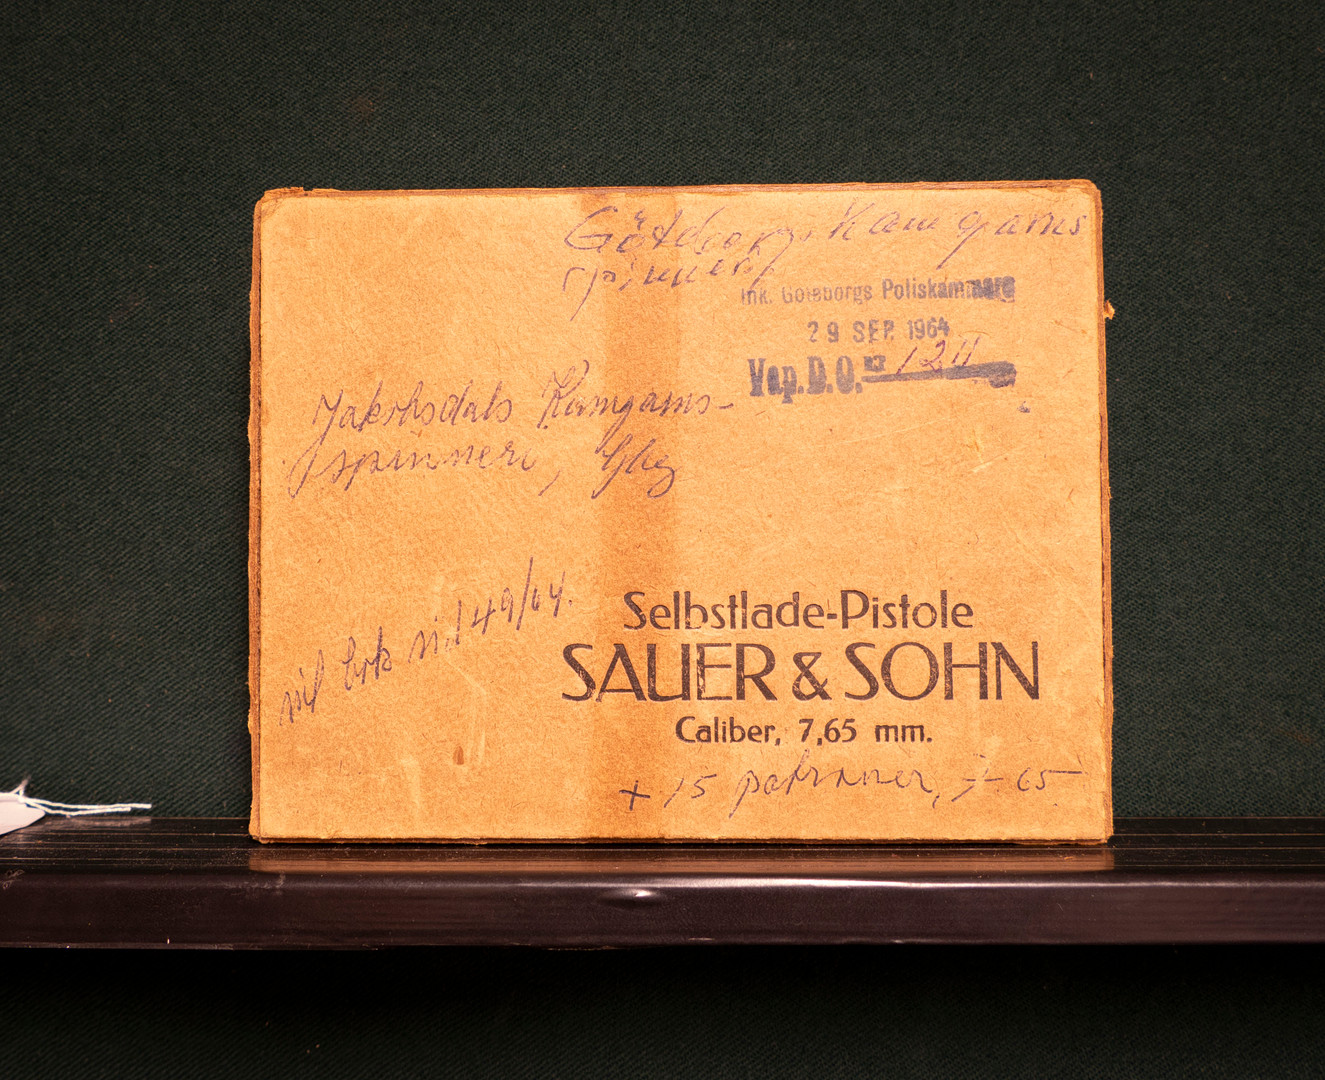 Göteborgs Kamgarns
spinneri
Ink. Göteborgs Poliskammare
29 SEP. 1964
Vap.D.O. nr
Jakobsdals Kamgarns-
spinneri, Gbg
49/64.
Selbstlade-Pistole
SAUER & SOHN
Caliber, 7,65 mm.
+ 15 patroner, 7-65